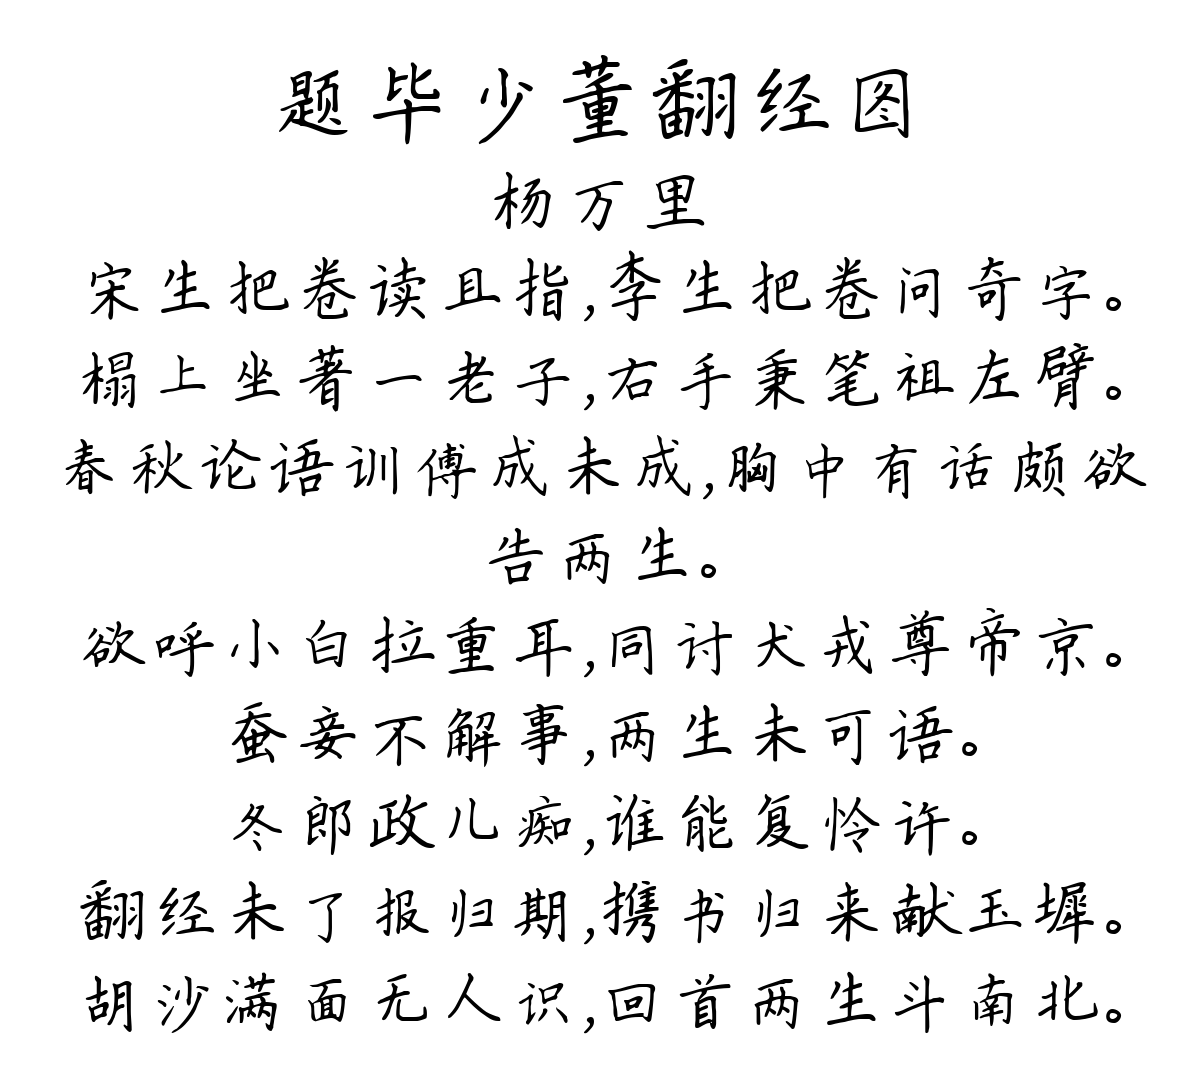 题毕少董翻经图
杨万里
宋生把卷读且指,李生把卷问奇字。
榻上坐著一老子,右手秉笔祖左臂。
春秋论语训傅成未成,胸中有话颇欲
告两生。
欲呼小白拉重耳,同讨犬戎尊帝京。
蚕妾不解事,两生未可语。
冬郎政儿痴,谁能复怜许。
翻经未了报归期,携书归来献玉墀。
胡沙满面无人识,回首两生斗南北。